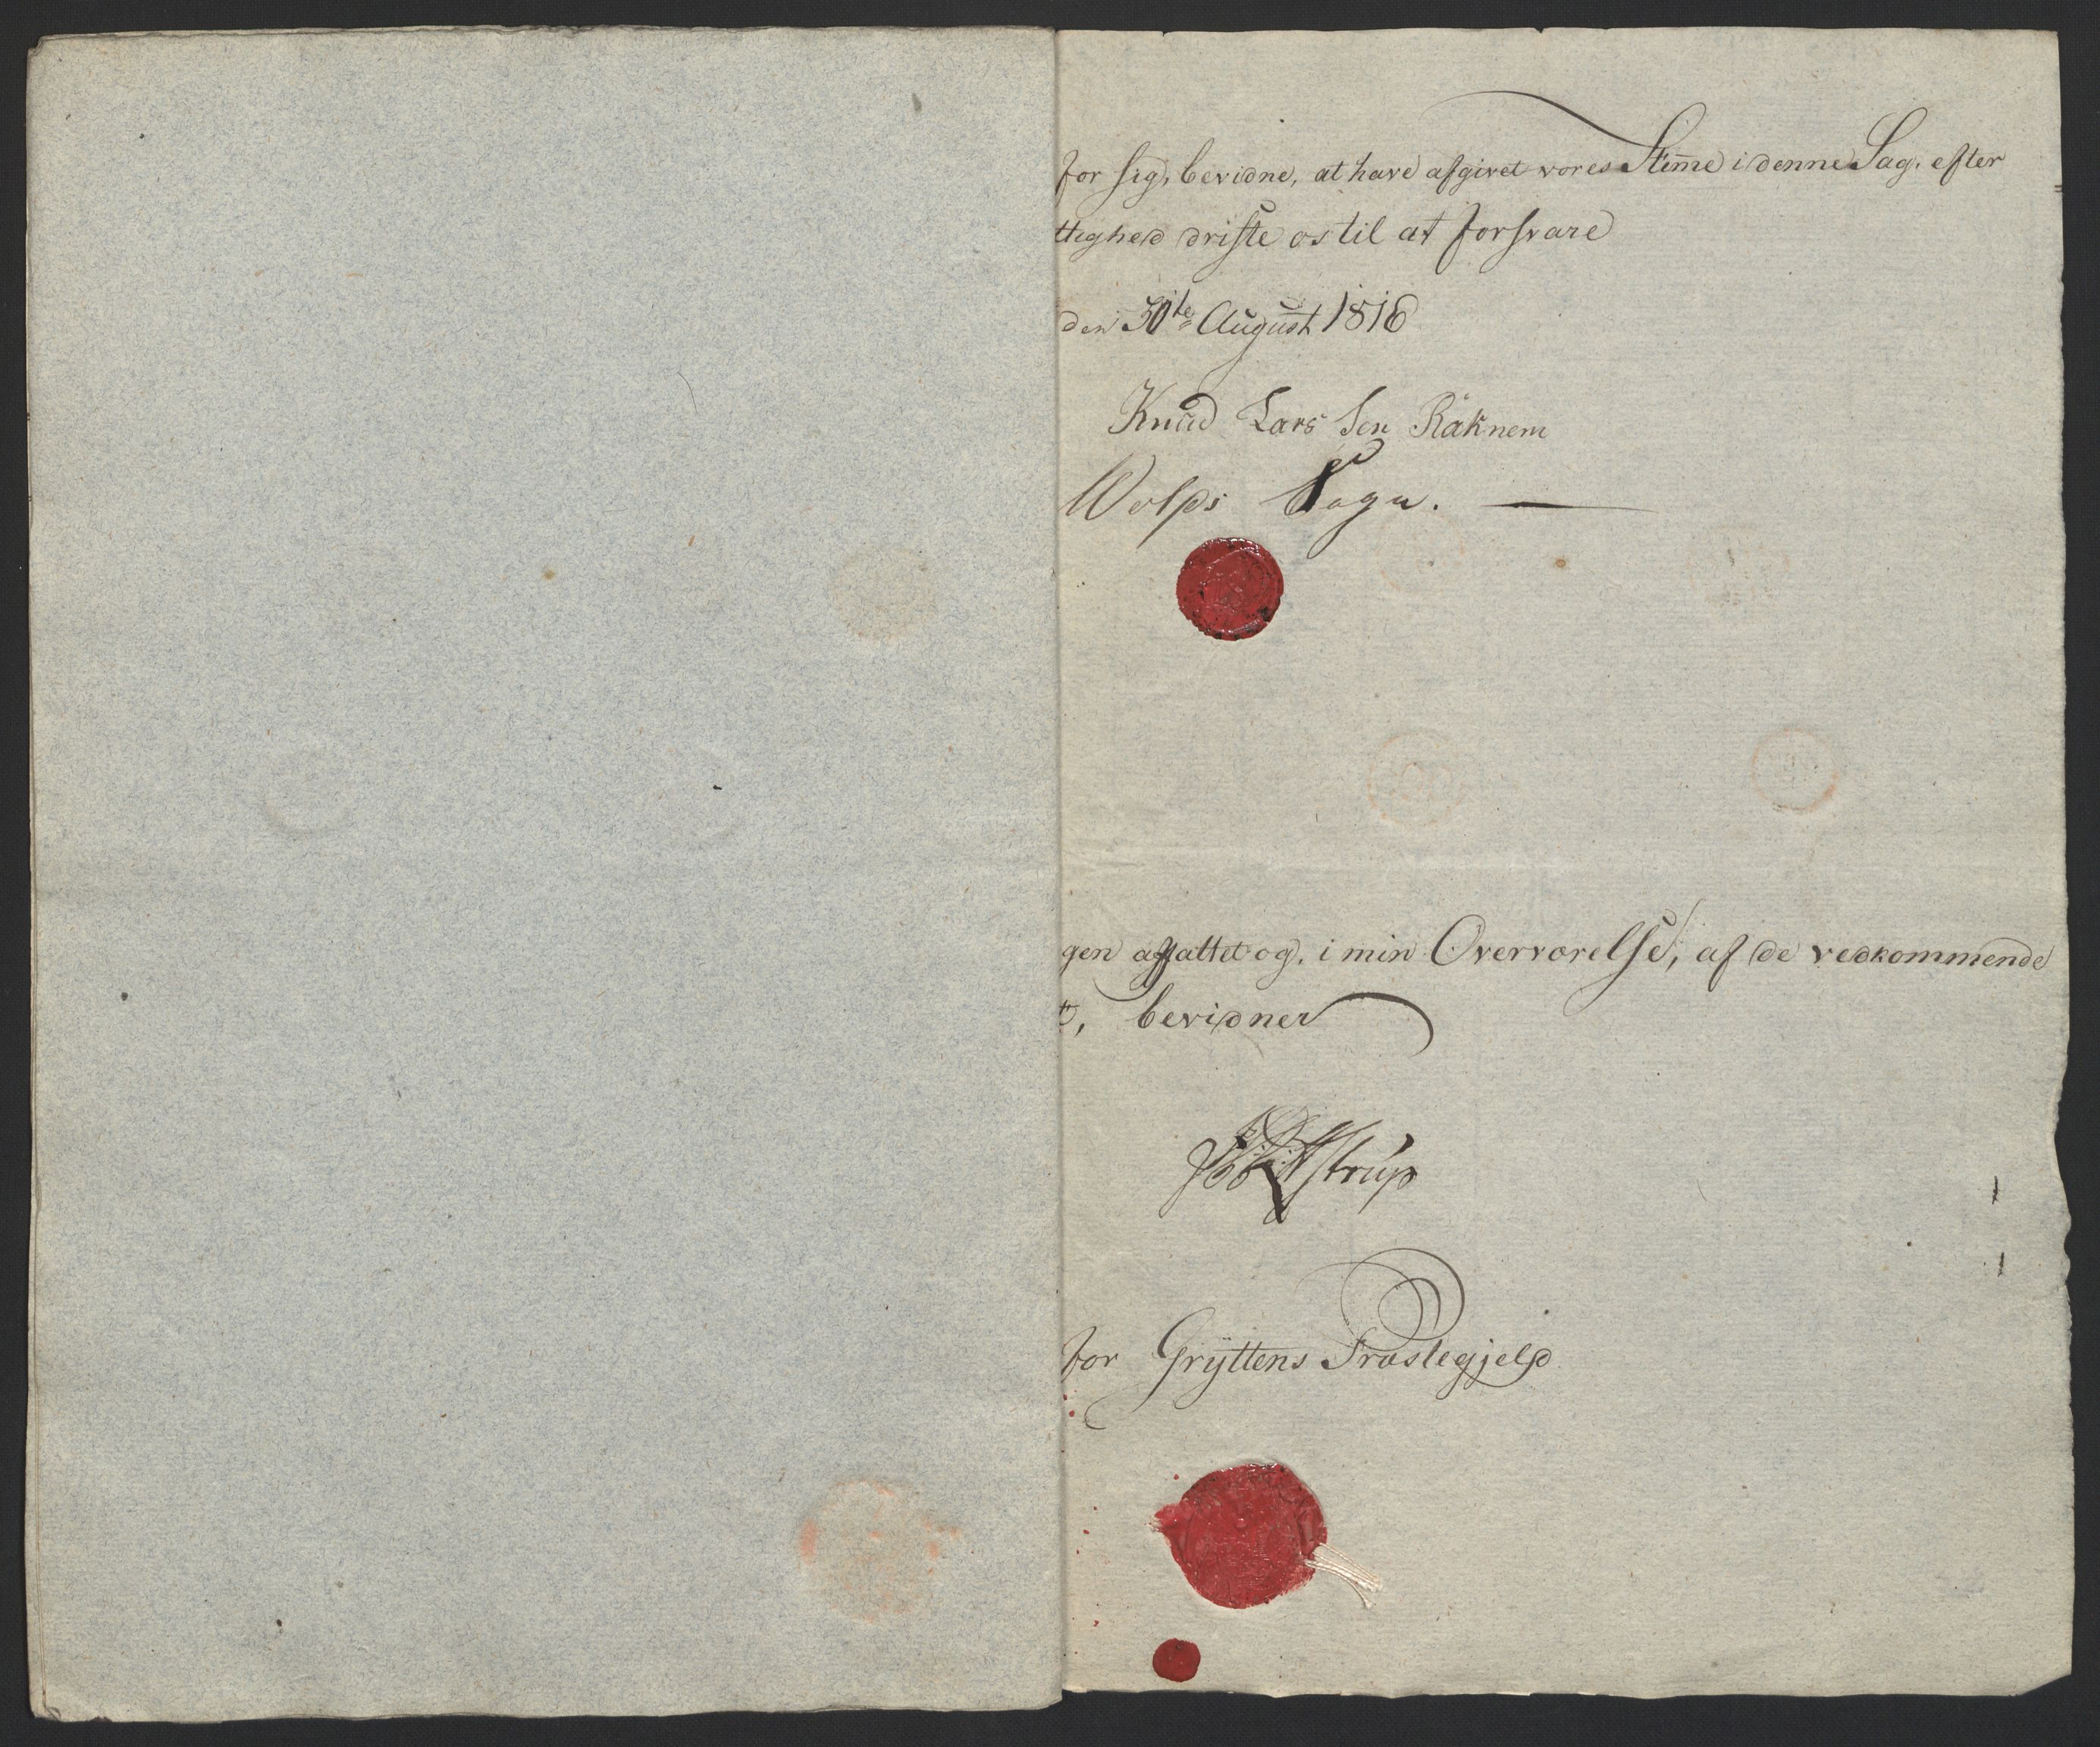 for sig, bevidne, at have afgivet vores Stim̄e i denne Sag, efter
ttighed driste os til at forsvare
den 30te August 1816
Knud Lars Sen Räknem
Sogn.
gen affattet og, i min Overværelse, af de vedkommende
bevidner
Astrup
for Grÿttens Præstegjeld